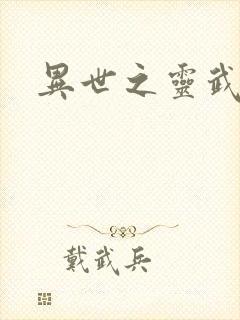 異世之靈武
戴武兵